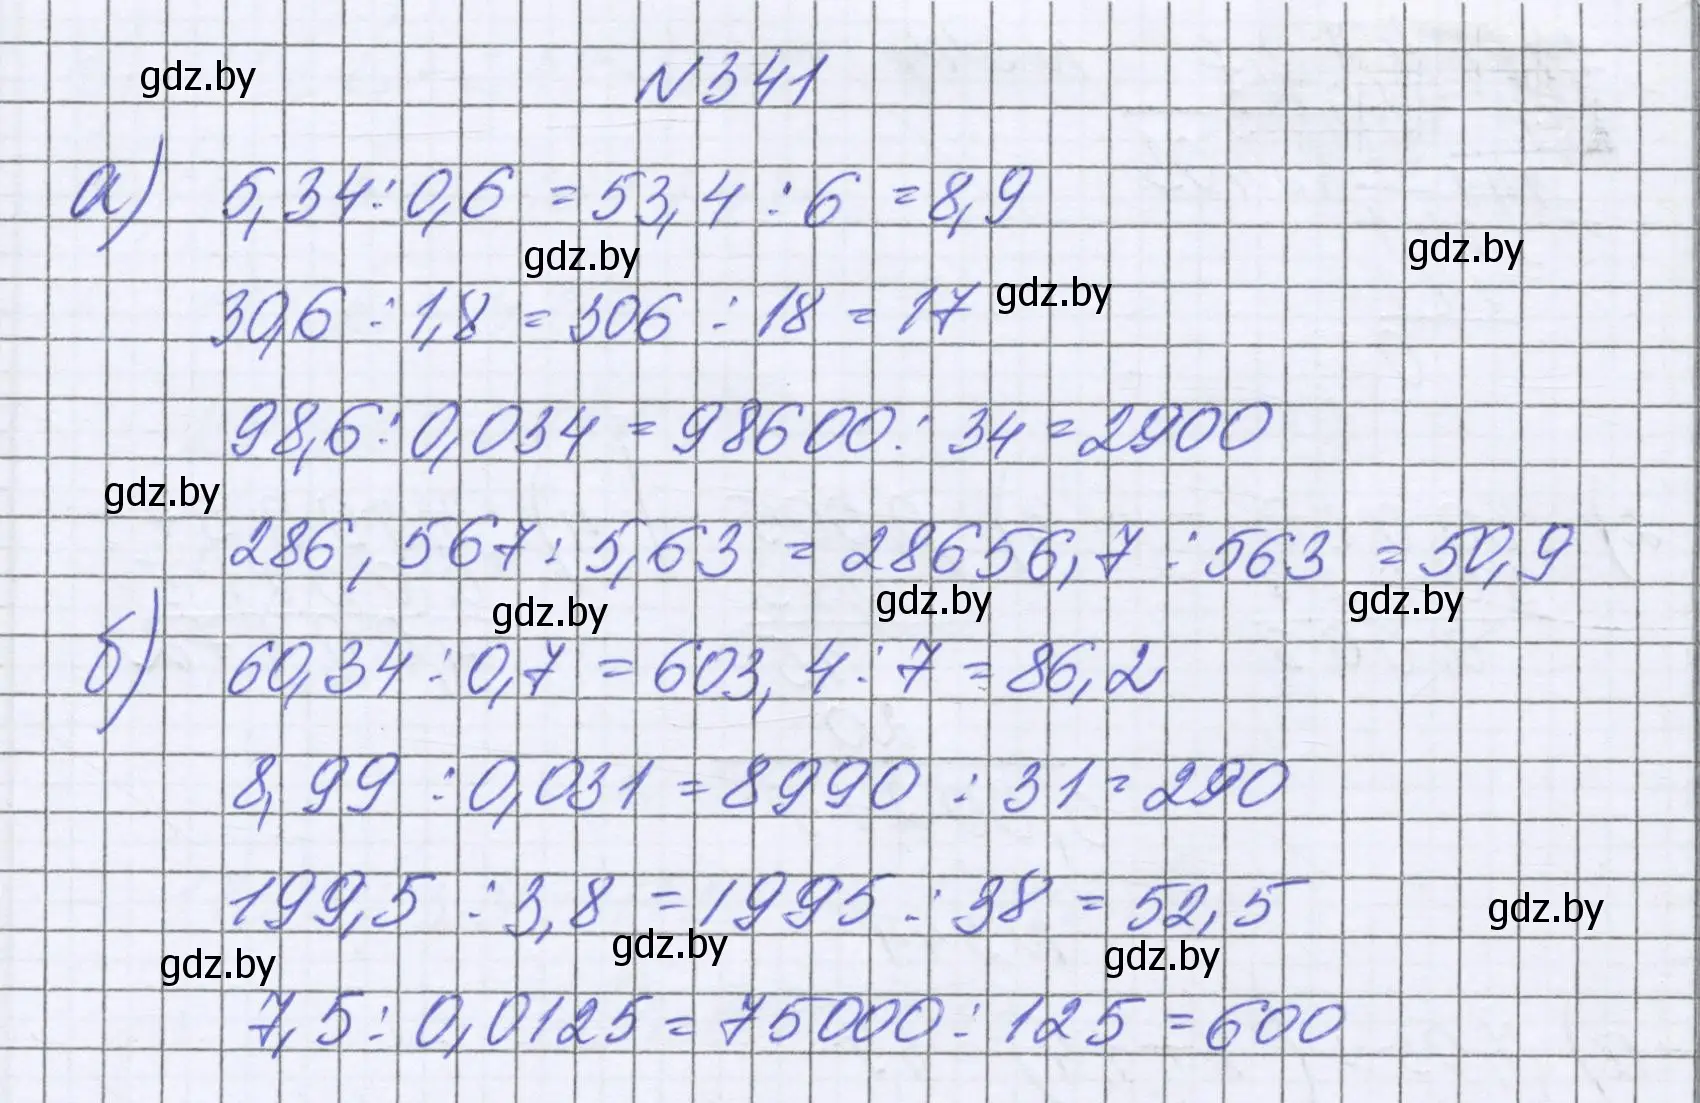 gdz.by N 341
а) 5,34 : 0,6 = 53,4 : 6 = 8,9
gdz.by gdz.by
30,6 : 1,8 = 306 : 18 = 17 gdz.by
98,6 : 0,034 = 98600 : 34 = 2900
gdz.by
286,567 : 5,63 = 28656,7 : 563 = 50,9
gdz.by gdz.by gdz.by
б) 60,34 : 0,7 = 603,4 : 7 = 86,2
8,99 : 0,031 = 8990 : 31 = 290
199,5 : 3,8 = 1995 : 38 = 52,5 gdz.by
gdz.by gdz.by gdz.by
7,5 : 0,0125 = 75000 : 125 = 600